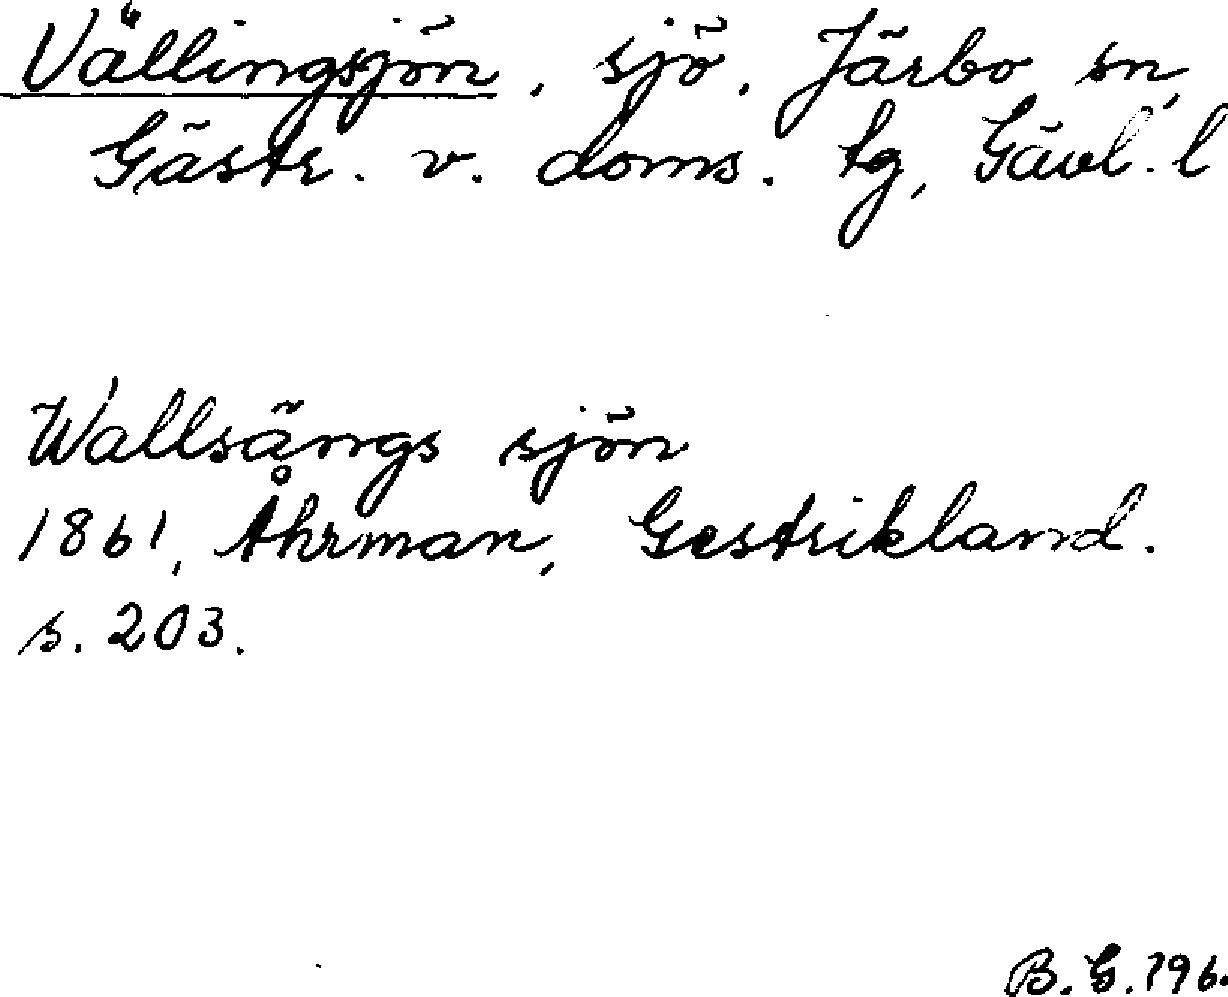 Vällingsjön, sjö. Järbo sn,
Gästr. v. doms. tg, Gävl. l
Wallsängs sjön
1861, Åhrman, Gestrikland.
s. 203.
B. G. 196.